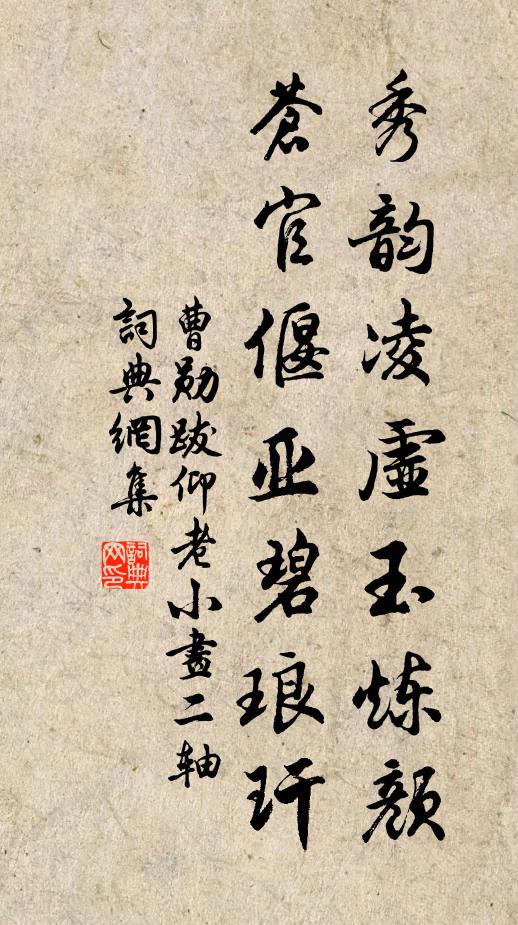 秀韵凌虚玉炼颜
蒼官偃亚碧琅玕
曹勋跋仰老小畫二轴
詞典網集
詞典
网印